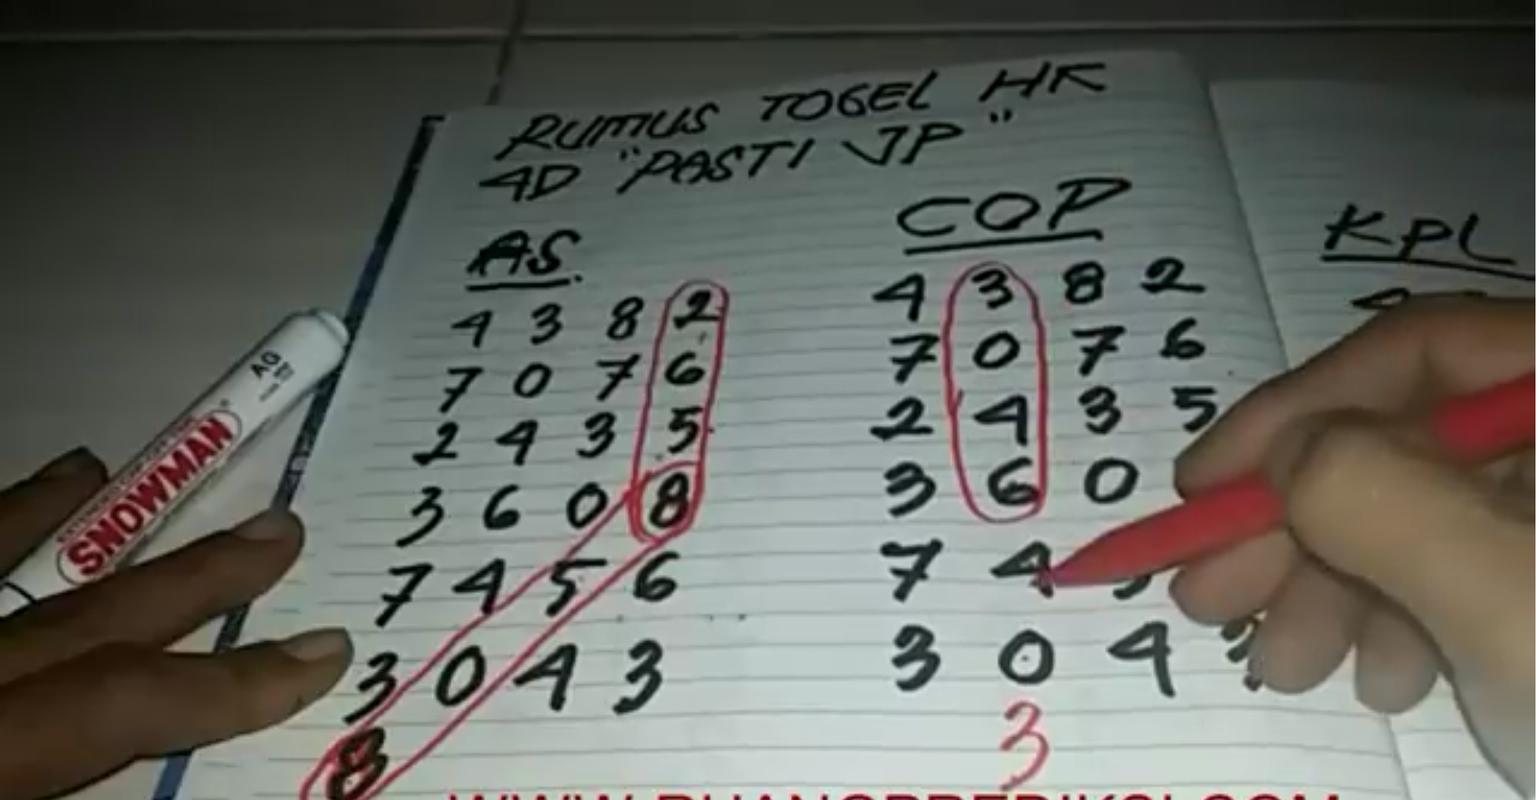 RUMUS TOGEL HK
4D "PASTI JP"
AS.
4 3 8 2
7 0 7 6
2 4 3 5
3 6 0 8
7 4 5 6
3 0 4 3
8
COP
4 3 8 2
7 0 7 6
2 4 3 5
3 6 0
7 4
3 0 4
3
KPL
SNOWMAN